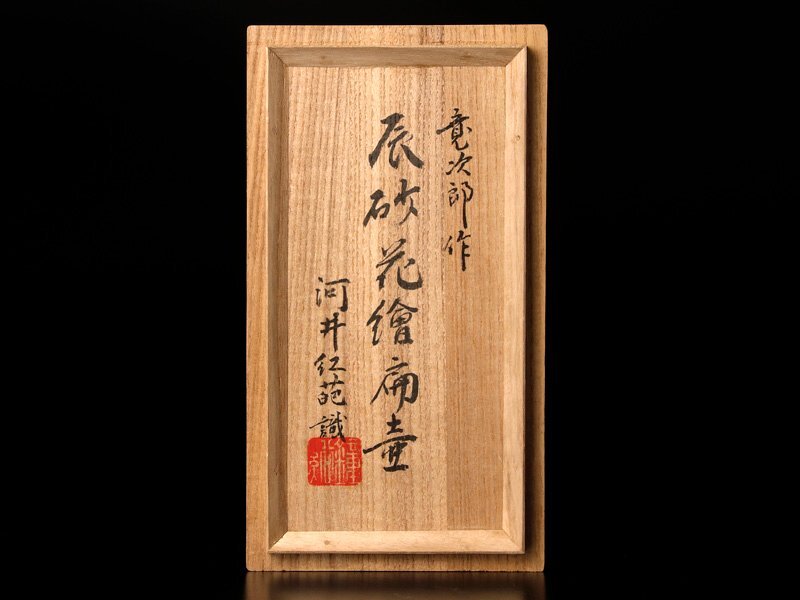 寛次郎作
辰砂花繪扁壷
河井紅葩識